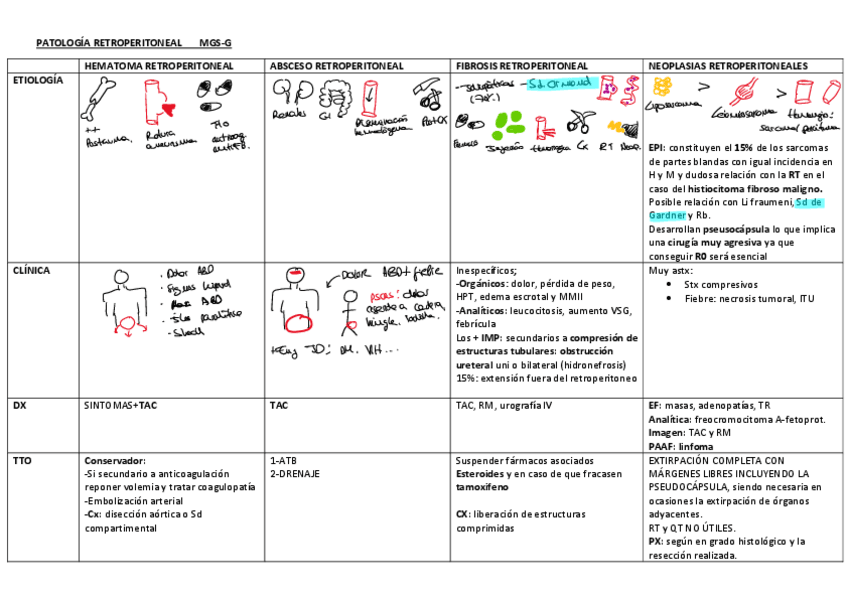 PATOLOGÍA RETROPERITONEAL MGS-G
HEMATOMA RETROPERITONEAL
ABSCESO RETROPERITONEAL
FIBROSIS RETROPERITONEAL
NEOPLASIAS RETROPERITONEALES
ETIOLOGÍA
++
Rotura
aneurisma
Tto
Renales
GI
Diseminación
hematógena
Post CX
- Idiopáticas - Sd Ormond
(70%)
Fármacos
Cx
RT
Neop.
>
>
Liposarcoma
Leiomiosarcoma
EPI: constituyen el 15% de los sarcomas
de partes blandas con igual incidencia en
H y M y dudosa relación con la RT en el
caso del histiocitoma fibroso maligno.
Posible relación con Li fraumeni, Sd de
Gardner y Rb.
Desarrollan pseusocápsula lo que implica
una cirugía muy agresiva ya que
conseguir R0 será esencial
CLÍNICA
· Dolor ABD
ABD
· Íleo paralítico
· Shock
DOLOR ABD + fiebre
psoas: dolor
cadera,
DM. VIH...
Inespecíficos;
-Orgánicos: dolor, pérdida de peso,
HPT, edema escrotal y MMII
-Analíticos: leucocitosis, aumento VSG,
febrícula
Los + IMP: secundarios a compresión de
estructuras tubulares: obstrucción
ureteral uni o bilateral (hidronefrosis)
15%: extensión fuera del retroperitoneo
Muy astx:
• Stx compresivos
• Fiebre: necrosis tumoral, ITU
DX
SINTOMAS+TAC
TAC
TAC, RM, urografía IV
EF: masas, adenopatías, TR
Analítica: freocromocitoma A-fetoprot.
Imagen: TAC y RM
PAAF: linfoma
TTO
Conservador:
-Si secundario a anticoagulación
reponer volemia y tratar coagulopatía
-Embolización arterial
-Cx: disección aórtica o Sd
compartimental
1-ATB
2-DRENAJE
Suspender fármacos asociados
Esteroides y en caso de que fracasen
tamoxifeno
CX: liberación de estructuras
comprimidas
EXTIRPACIÓN COMPLETA CON
MÁRGENES LIBRES INCLUYENDO LA
PSEUDOCÁPSULA, siendo necesaria en
ocasiones la extirpación de órganos
adyacentes.
RT y QT NO ÚTILES.
PX: según en grado histológico y la
resección realizada.